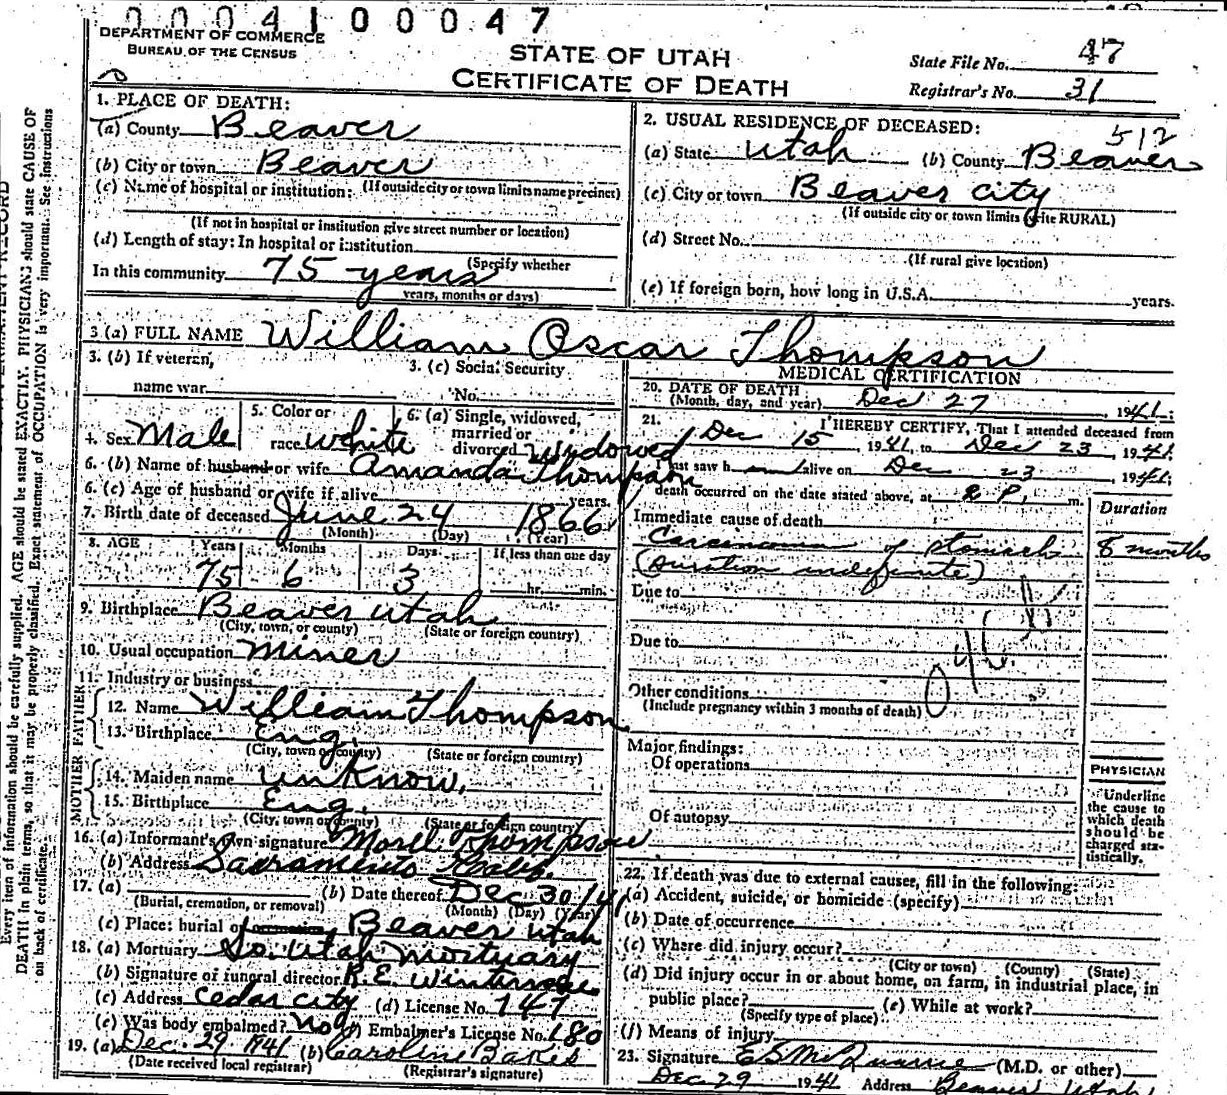 0004100047
DEPARTMENT OF COMMERCE
BUREAU OF THE CENSUS
STATE OF UTAH
CERTIFICATE OF DEATH
State File No. 47
Registrar's No. 31
1. PLACE OF DEATH:
(a) County Beaver
(b) City or town Beaver
(c) Name of hospital or institution: (If outside city or town limits name precinct)
(If not in hospital or institution give street number or location)
(d) Length of stay: In hospital or institution
(Specify whether
In this community 75 years
years, months or days)
2. USUAL RESIDENCE OF DECEASED: 512
(a) State Utah (b) County Beaver
(c) City or town Beaver City
(If outside city or town limits write RURAL)
(d) Street No.
(If rural give location)
(e) If foreign born, how long in U.S.A. years.
3 (a) FULL NAME William Oscar Thompson
3. (b) If veteran,
name war
3. (c) Social Security
No.
4. Sex Male
5. Color or
race white
6. (a) Single, widowed,
married or
divorced Widowed
6. (b) Name of husband or wife Amanda Thompson
6. (c) Age of husband or wife if alive years.
7. Birth date of deceased June 24 1866
(Month) (Day) (Year)
8. AGE Years Months Days If less than one day
75 6 3 hr. min.
9. Birthplace Beaver Utah
(City, town, or county) (State or foreign country)
10. Usual occupation Miner
11. Industry or business
FATHER
12. Name William Thompson
13. Birthplace Eng.
(City, town or county) (State or foreign country)
MOTHER
14. Maiden name unKnow.
15. Birthplace Eng.
(City, town or county) (State or foreign country)
16. (a) Informant's own signature Morell Thompson
(b) Address Sacramento Calif.
17. (a) (b) Date thereof Dec 30/41
(Burial, cremation, or removal) (Month) (Day) (Year)
(c) Place: burial or Beaver Utah
18. (a) Mortuary So. Utah Mortuary
(b) Signature of funeral director R.E.
(c) Address Cedar City (d) License No. 147
(e) Was body embalmed? No (f) Embalmer's License No. 180
19. (a) Dec. 29 1941 (b) Caroline Bakes
(Date received local registrar) (Registrar's signature)
MEDICAL CERTIFICATION
20. DATE OF DEATH
(Month, day, and year) Dec 27, 1941;
21. I HEREBY CERTIFY, That I attended deceased from
Dec 15, 1941, to Dec 23, 1941;
I last saw h alive on Dec 23, 1941;
death occurred on the date stated above, at 2 P. m.
Duration
Immediate cause of death
Carcinoma of stomach 8 months
(duration indefinite)
Due to
Due to
Other conditions
(Include pregnancy within 3 months of death)
Major findings:
Of operations
Of autopsy
PHYSICIAN
Underline
the cause to
which death
should be
charged sta-
tistically.
22. If death was due to external causes, fill in the following:
(a) Accident, suicide, or homicide (specify)
(b) Date of occurrence
(c) Where did injury occur?
(City or town) (County) (State)
(d) Did injury occur in or about home, on farm, in industrial place, in
public place? (e) While at work?
(Specify type of place)
(f) Means of injury
23. Signature (M.D. or other)
Dec 29 1941 Address Beaver Utah
Every item of information should be carefully supplied. AGE should be stated EXACTLY. PHYSICIANS should state CAUSE OF
DEATH in plain terms, so that it may be properly classified. Exact statement of OCCUPATION is very important. See instructions
on back of certificate.